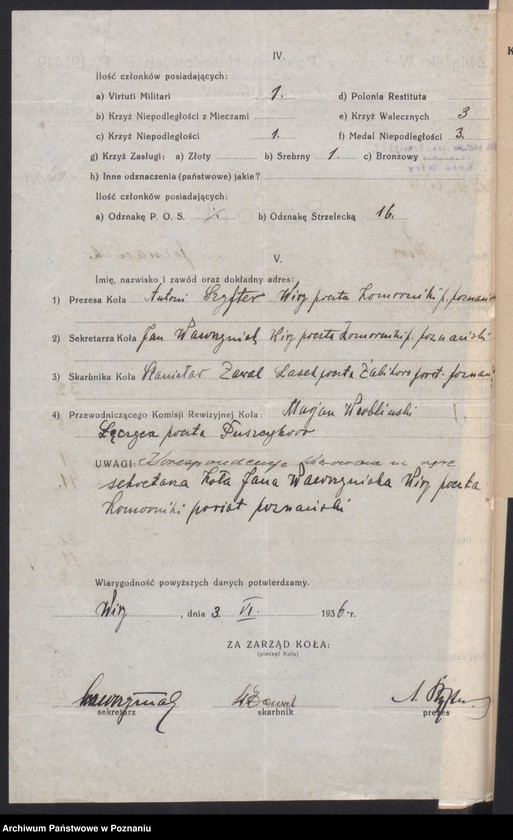 IV.
Ilość członków posiadających:
a) Virtuti Militari 1. d) Polonia Restituta
b) Krzyż Niepodległości z Mieczami e) Krzyż Walecznych 3
c) Krzyż Niepodległości 1. f) Medal Niepodległości 3.
g) Krzyż Zasługi: a) Złoty b) Srebrny 1. c) Bronzowy
h) Inne odznaczenia (państwowe) jakie?
Ilość członków posiadających:
a) Odznakę P. O. S. b) Odznakę Strzelecką 16.
V.
Imię, nazwisko i zawód oraz dokładny adres:
1) Prezesa Koła Antoni Szyfter Wiry poczta Komorniki p. poznański
2) Sekretarza Koła Jan Wawrzyniak Wiry poczta Komorniki p. poznański
3) Skarbnika Koła Stanisław Zawal Lasek poczta Żabikowo powt. poznań
4) Przewodniczącego Komisji Rewizyjnej Koła: Marjan
Łęczyca poczta Puszczykowo
UWAGI: Korespondencję na ręce
sekretarza Koła Jana Wawrzyniaka Wiry poczta
Komorniki powiat poznański
Wiarygodność powyższych danych potwierdzamy.
Wiry, dnia 3. VI. 1936 r.
ZA ZARZĄD KOŁA:
(pieczęć Koła)
Wawrzyniak Zawal A. Szyfter
sekretarz skarbnik prezes
Archiwum Państwowe w Poznaniu